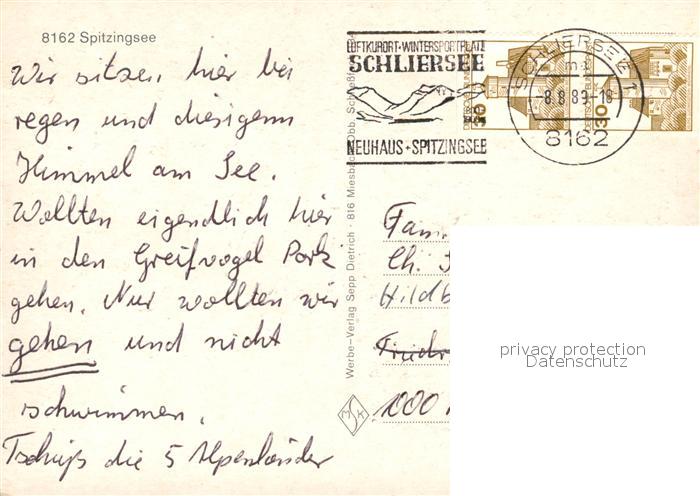 8162 Spitzingsee
Wir sitzen hier bei
regen und diesigem
Himmel am See.
Wollten eigendlich hier
in den Greifvogel Park
gehen. Nur wollten wir
gehen und nicht
schwimmen.
Tschüß die 5 Alpenländer
Werbe-Verlag Sepp Dietrich · 816 Miesbach/Obb.
LUFTKURORT·WINTERSPORTPLATZ
SCHLIERSEE
NEUHAUS·SPITZINGSEE
SCHLIERSEE 1
ma
-8.8.89-18
8162
30
Fam.
Ch.
Hildb
Friedr
1000
MSK
privacy protection
Datenschutz